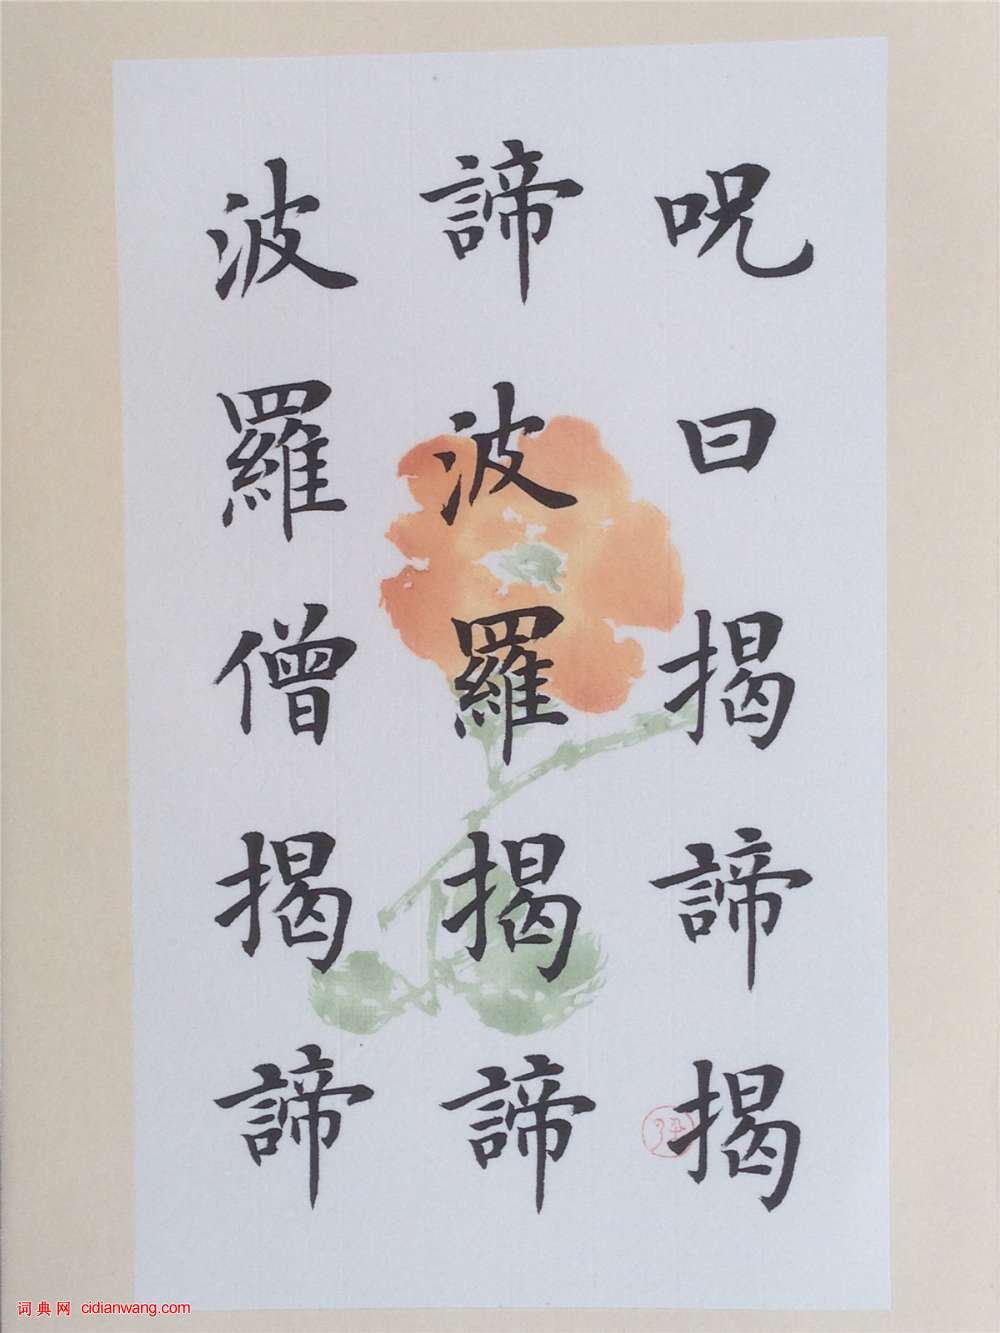 呪曰揭諦揭
諦波羅揭諦
波羅僧揭諦
词典网 cidianwang.com